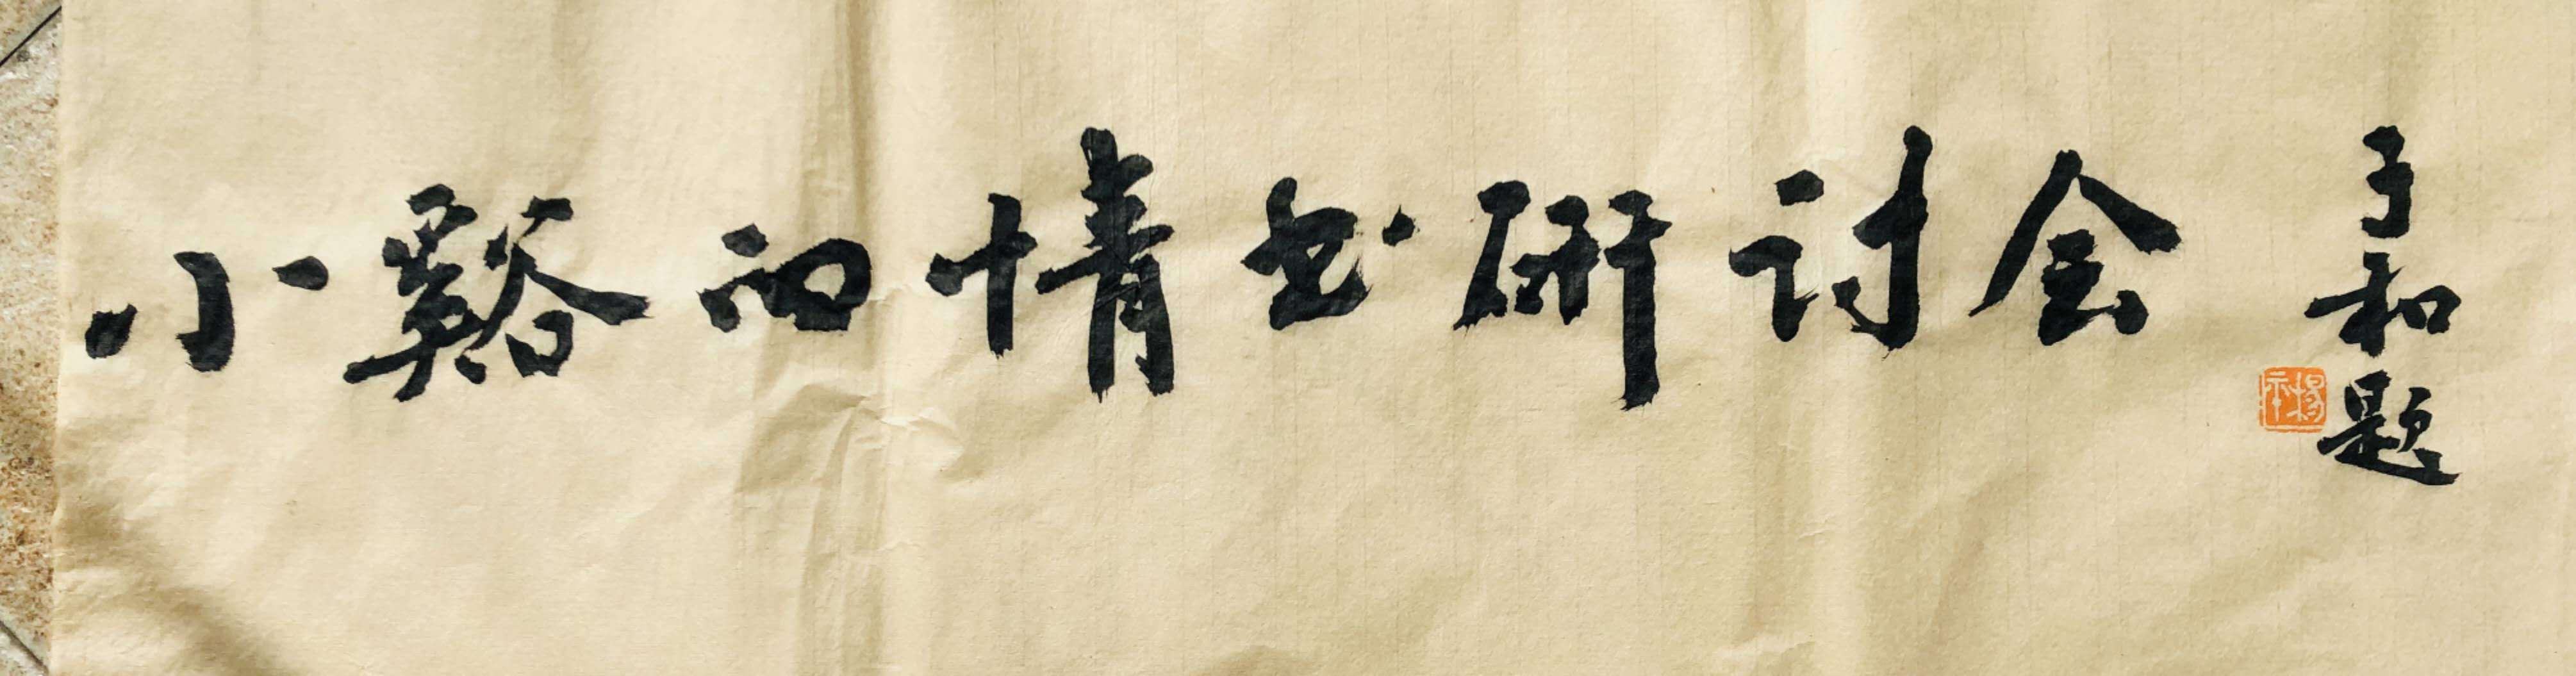 小谿的情书研讨会
子和题